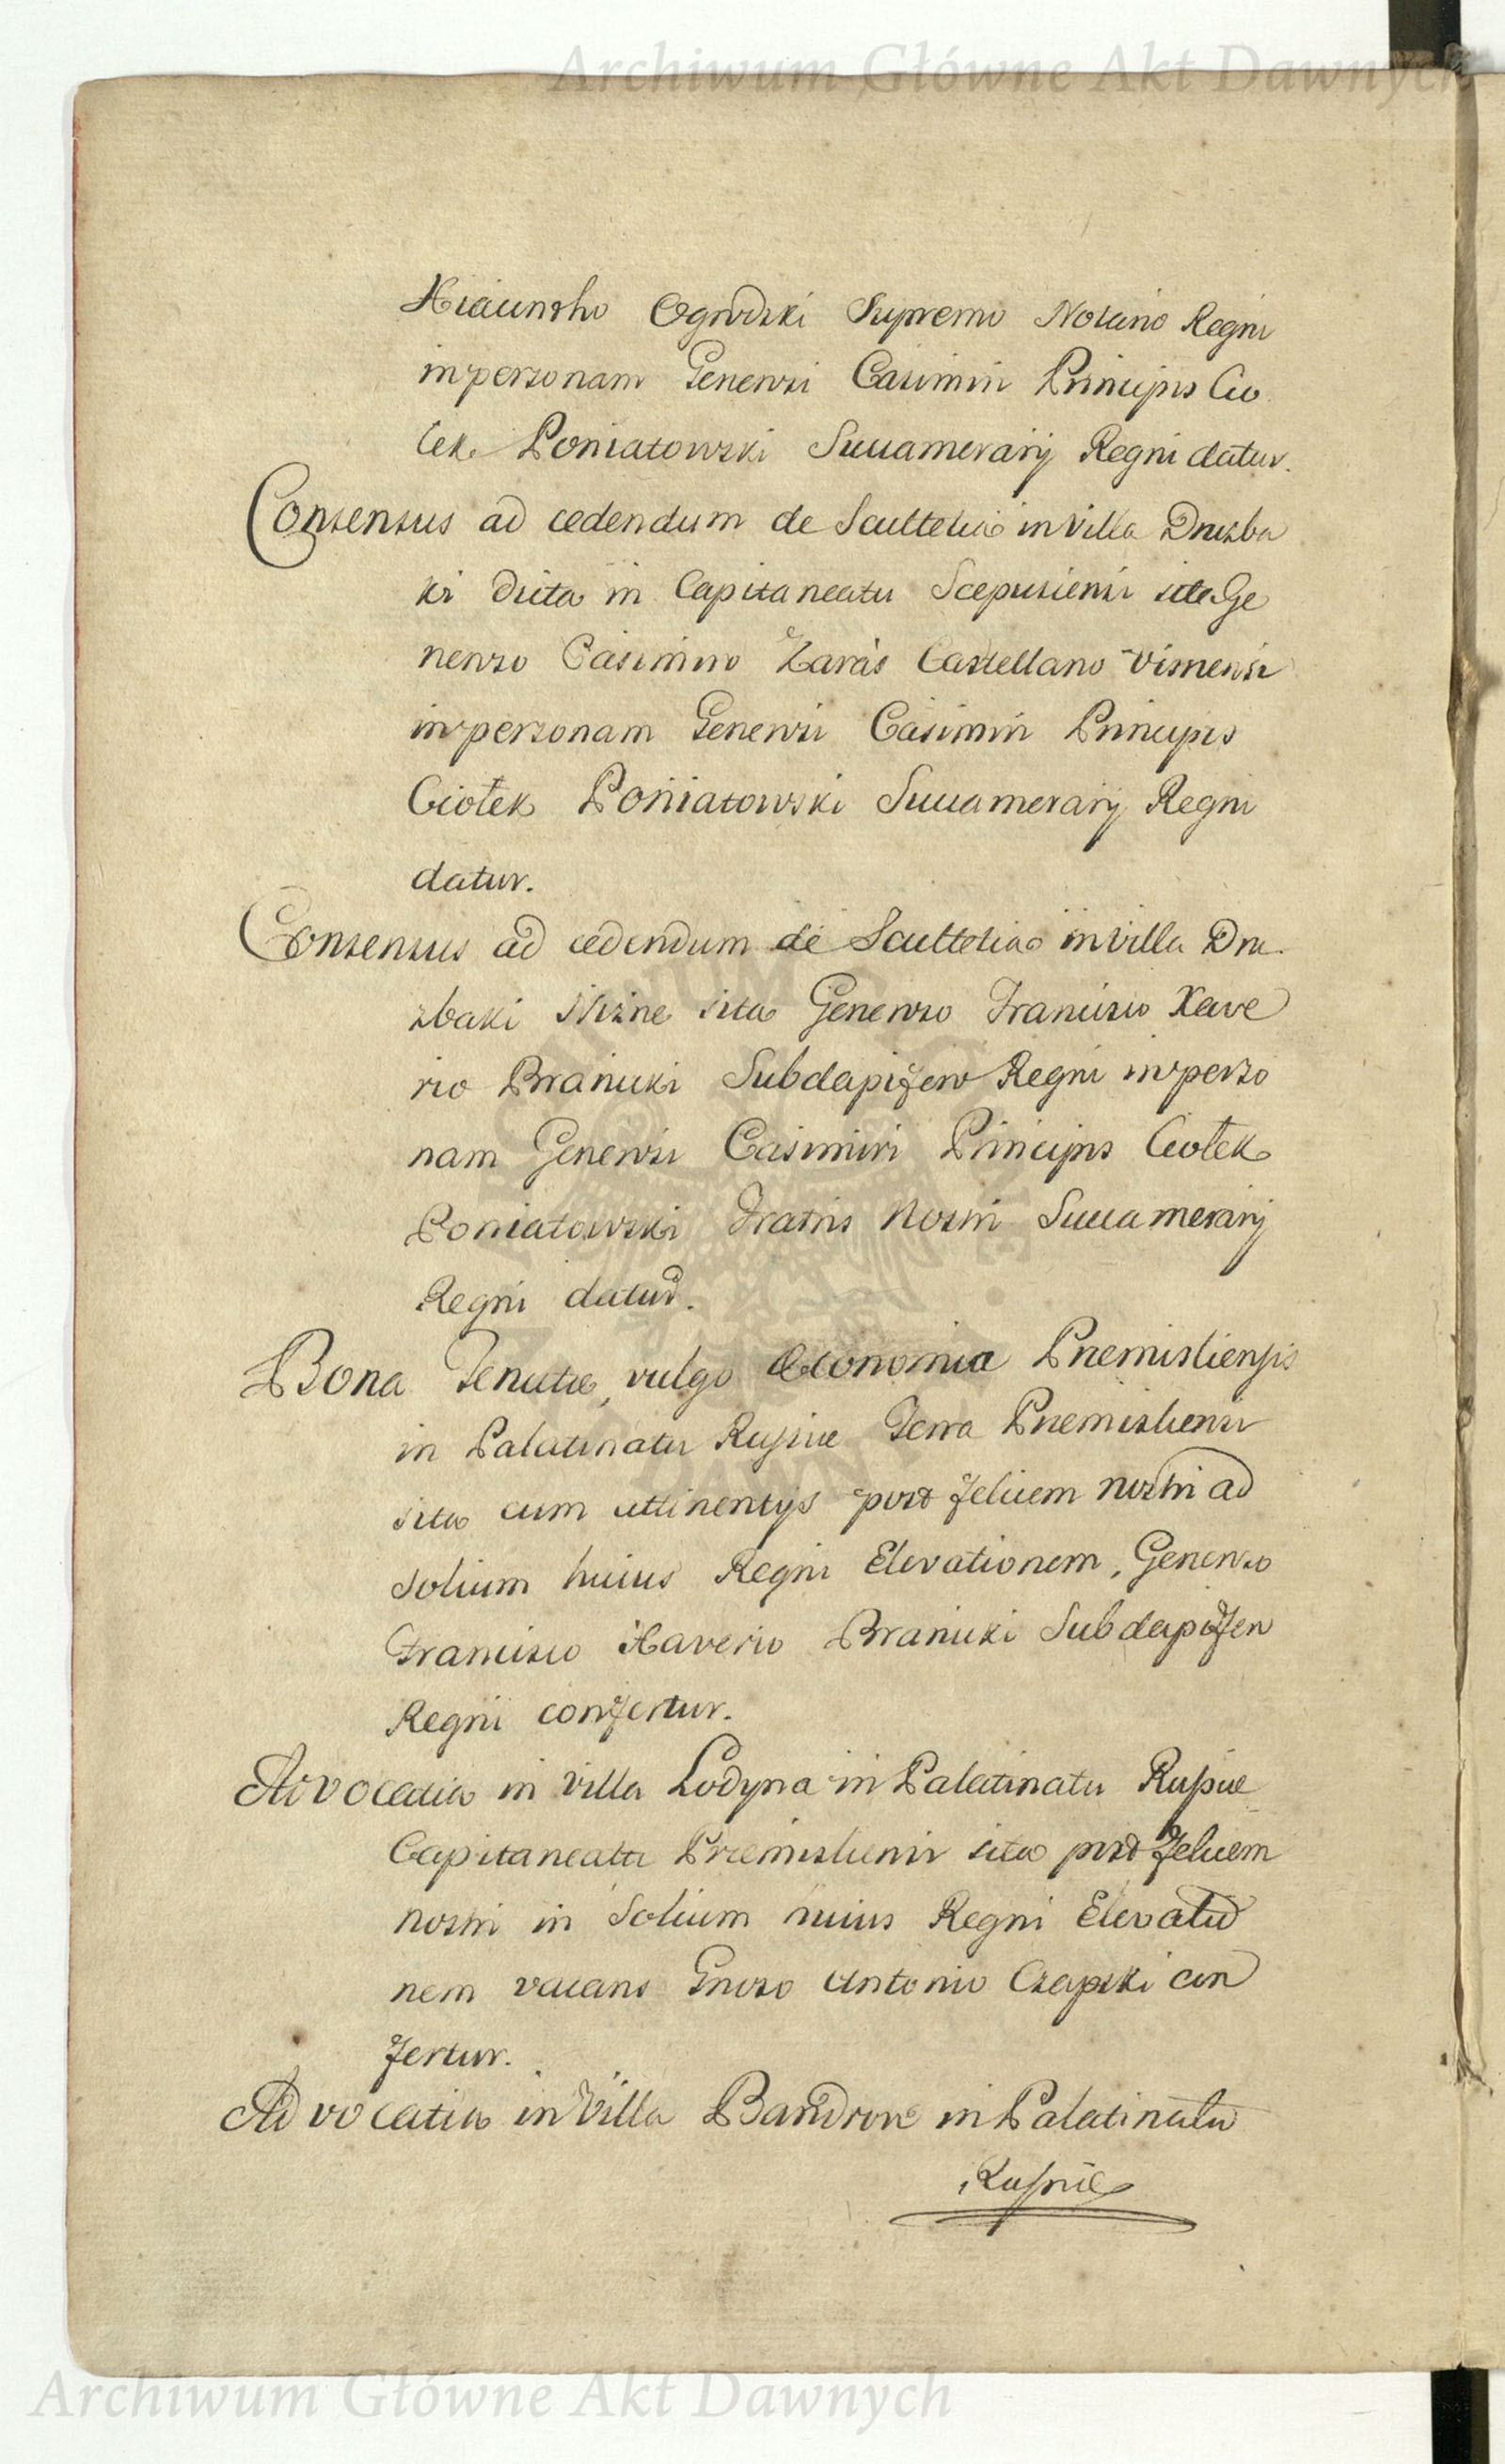 Archiwum Główne Akt Dawnych
Hiacintho Ogrodzki Supremo Notario Regni
in personam Generosi Casimiri Principis Cio
łek Poniatowski Succamerarij Regni datur.
Consensus ad cedendum de Scultetia in Villa Druzba
ki dicta in Capitaneatu Scepusiensi sita Ge
neroso Casimiro Karaś Castellano Visnensi
in personam Generosi Casimiri Principis
Ciołek Poniatowski Succamerarij Regni
datur.
Consensus ad cedendum de Scultetia in villa Dru
zbaki Nizne sita Generoso Francisco Xave
rio Branicki Subdapifero Regni in perso
nam Generosi Casimiri Principis Ciołek
Poniatowski Fratris Nostri Succamerarij
Regni datur.
Bona Tenutæ, vulgo Œconomia Præmisliensis
in Palatinatu Russiæ Terra Præmisliensi
sita cum attinentijs post felicem nostri ad
Solium huius Regni Elevationem, Generoso
Francisco Xaverio Branicki Subdapifero
Regni confertur.
Advocatia in villa Lodyna in Palatinatu Russiæ
Capitaneatu Præmisliensi sita post felicem
nostri in Solium huius Regni Elevatio
nem vacans Gnroso Antonio Czapski con
fertur.
Advocatia in Villa Bandrow in Palatinatu
Russiæ
Archiwum Główne Akt Dawnych